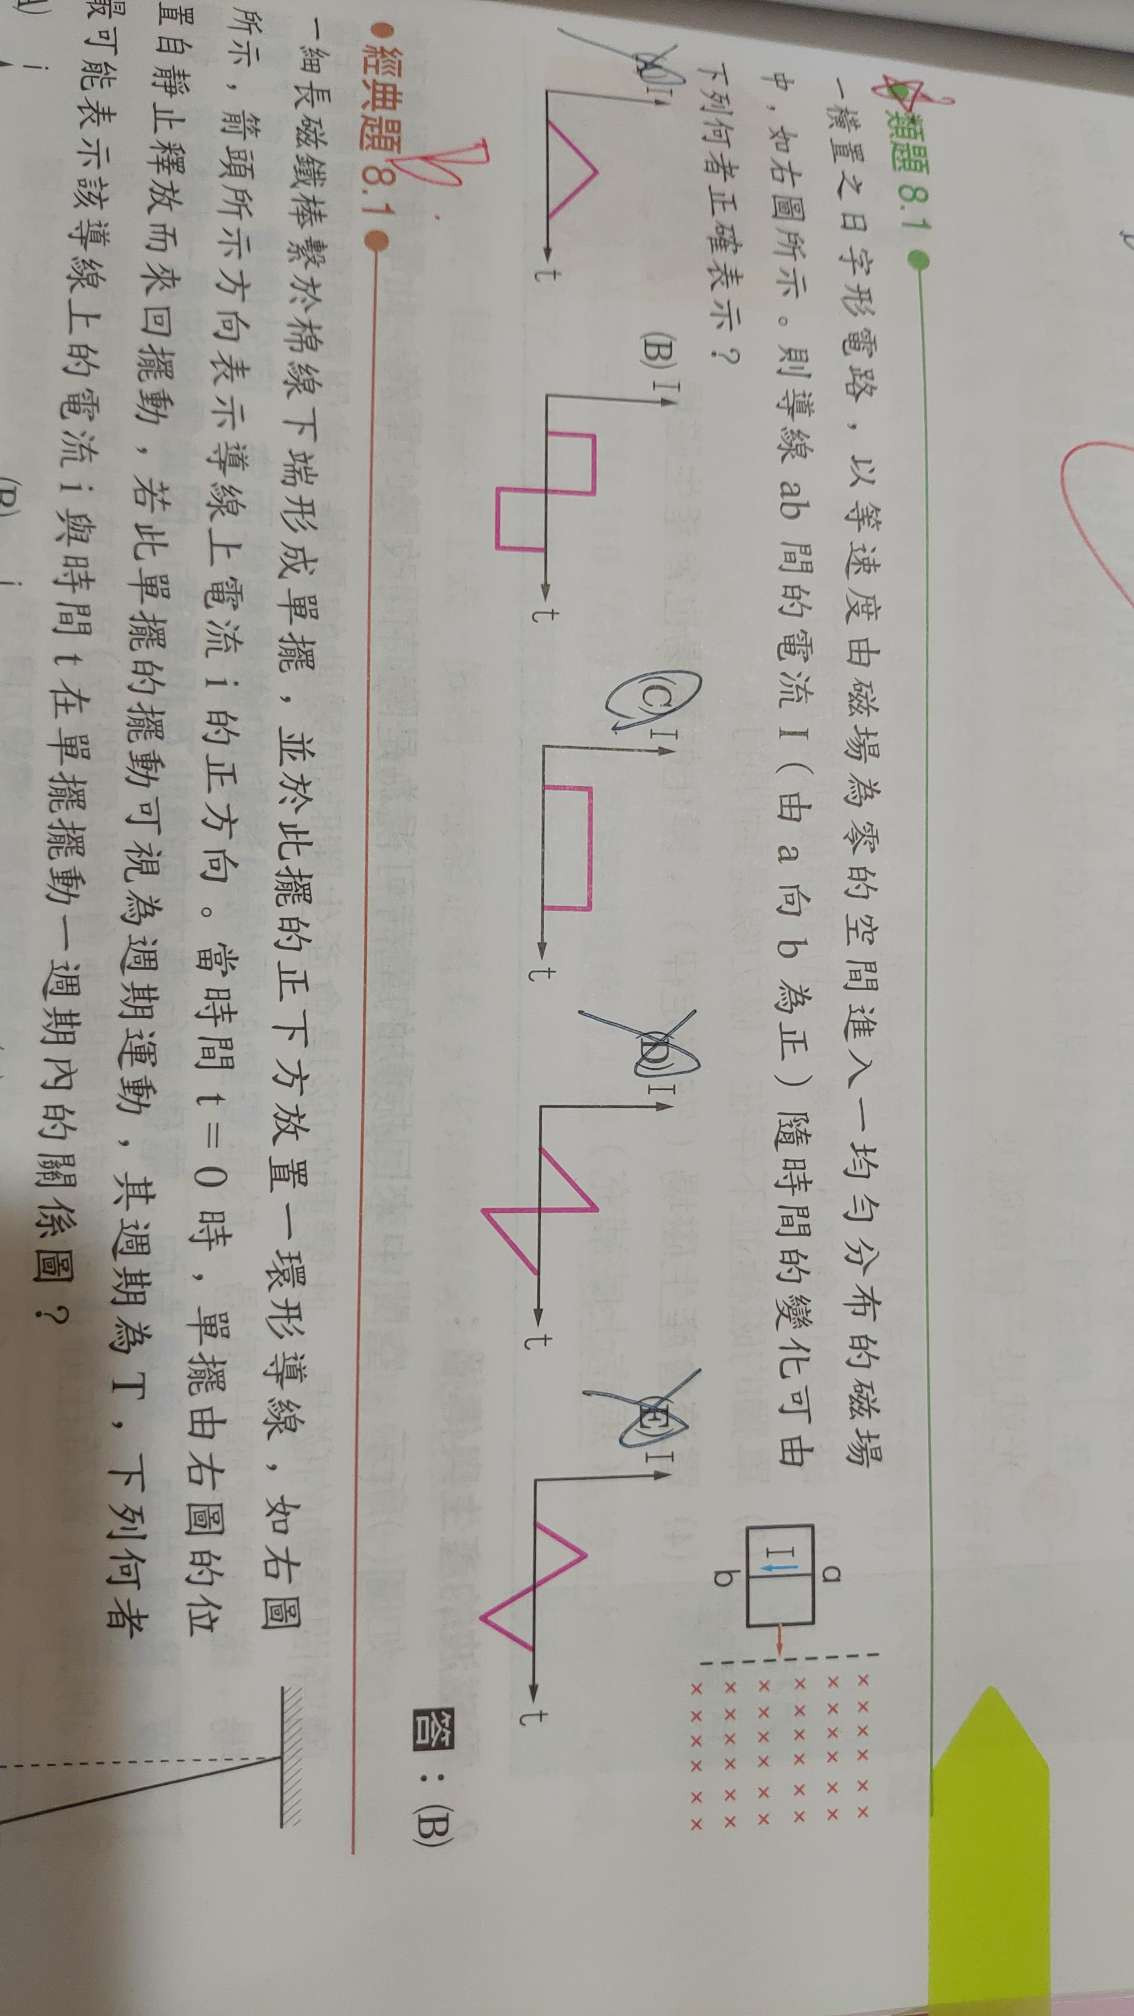 類題 8.1
一橫置之日字形電路，以等速度由磁場為零的空間進入一均勻分布的磁場
中，如右圖所示。則導線 ab 間的電流 I（由 a 向 b 為正）隨時間的變化可由
下列何者正確表示？
a
I
b
× × × × ×
× × × × ×
× × × × ×
× × × × ×
× × × × ×
× × × × ×
(A) I
t
(B) I
t
(C) I
t
(D) I
t
(E) I
t
答：(B)
經典題 8.1
一細長磁鐵棒繫於棉線下端形成單擺，並於此擺的正下方放置一環形導線，如右圖
所示，箭頭所示方向表示導線上電流 i 的正方向。當時間 t = 0 時，單擺由右圖的位
置自靜止釋放而來回擺動，若此單擺的擺動可視為週期運動，其週期為 T，下列何者
最可能表示該導線上的電流 i 與時間 t 在單擺擺動一週期內的關係圖？
i
(B) i